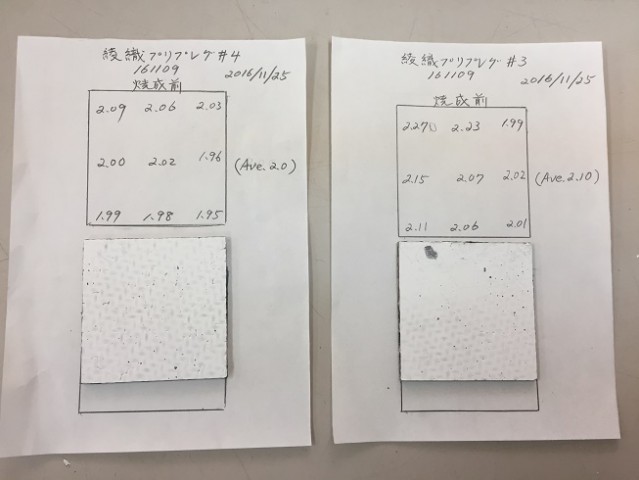 綾織プリプレグ#4
161109
2016/11/25
焼成前
2.09 2.06 2.03
2.00 2.02 1.96
(Ave.2.0)
1.99 1.98 1.95
綾織プリプレグ#3
161109
2016/11/25
焼成前
2.27 2.23 1.99
2.15 2.07 2.02
(Ave.2.10)
2.11 2.06 2.01